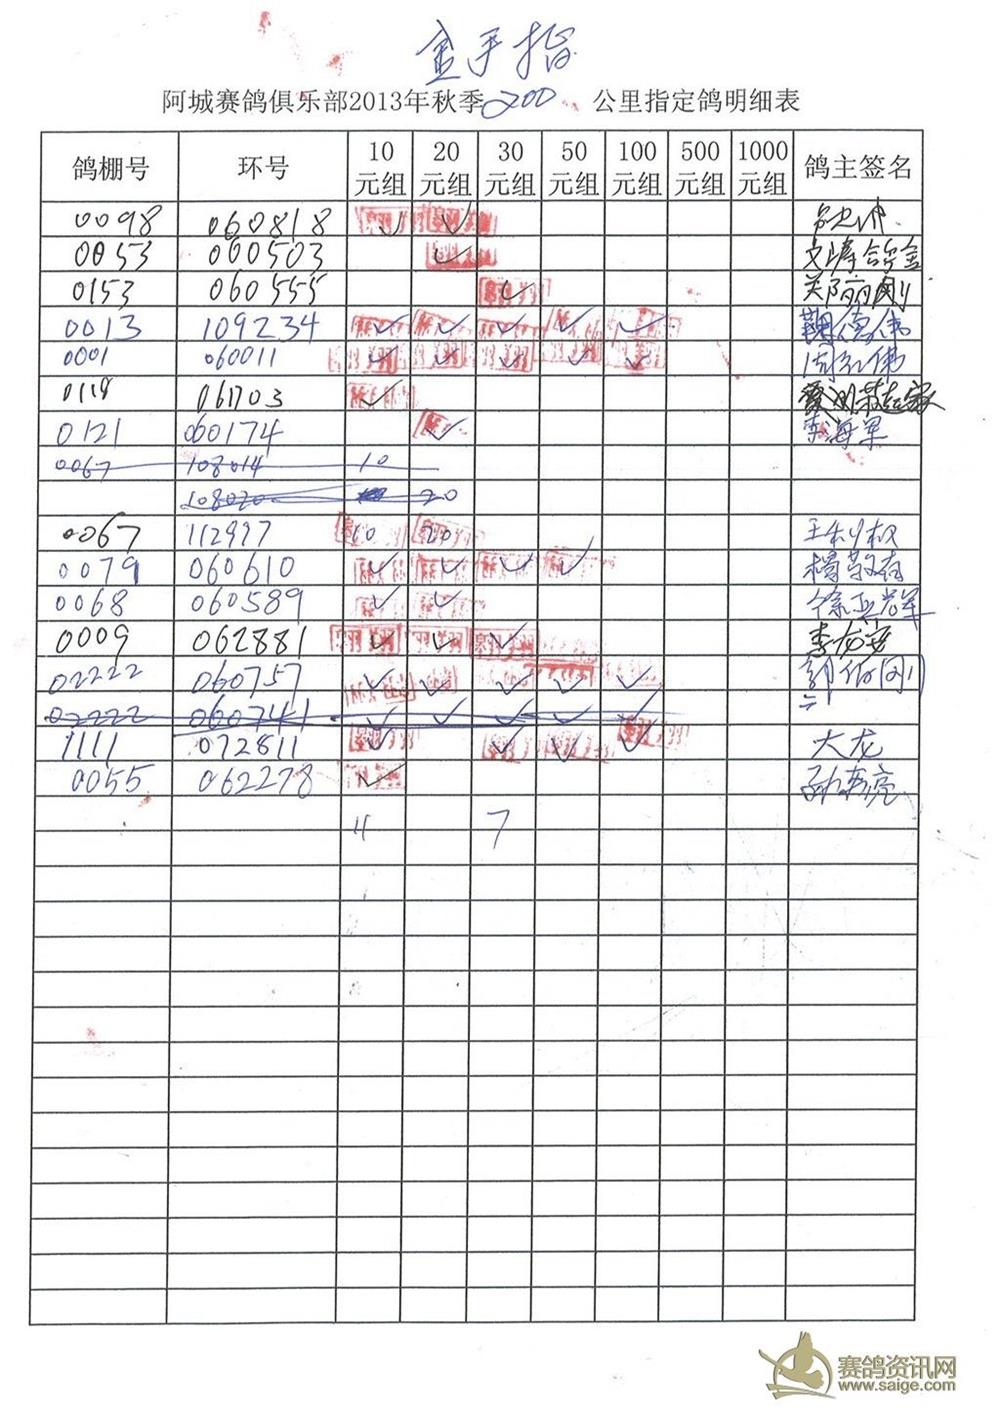 金手指
阿城赛鸽俱乐部2013年秋季200 公里指定鸽明细表
鸽棚号 环号 10元组 20元组 30元组 50元组 100元组 500元组 1000元组 鸽主签名
0098 060818 ✓ ✓
0053 060503 ✓
0153 060555 ✓ 关丽刚
0013 109234 ✓ ✓ ✓ ✓ ✓
0001 060011 ✓ ✓ ✓ ✓ ✓
0118 061703 ✓
0121 060174 ✓ 李海军
0067 108014 10
108020 20
0067 112997 10 20 王利权
0079 060610 ✓ ✓ ✓ ✓
0068 060589 ✓ ✓ 徐亚军
0009 062881 ✓ ✓ ✓ 李龙安
02222 060757 ✓ ✓ ✓ ✓ ✓
02222 060741 ✓ ✓ ✓ ✓ ✓
1111 072811 ✓ ✓ ✓ ✓ 大龙
0055 062278 ✓
11 7
赛鸽资讯网
www.saige.com